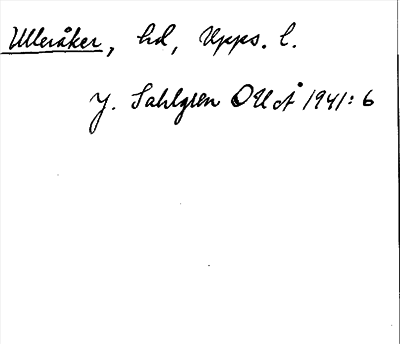 Ulleråker, hd, Upps. l.
J. Sahlgren OUÅ 1941: 6